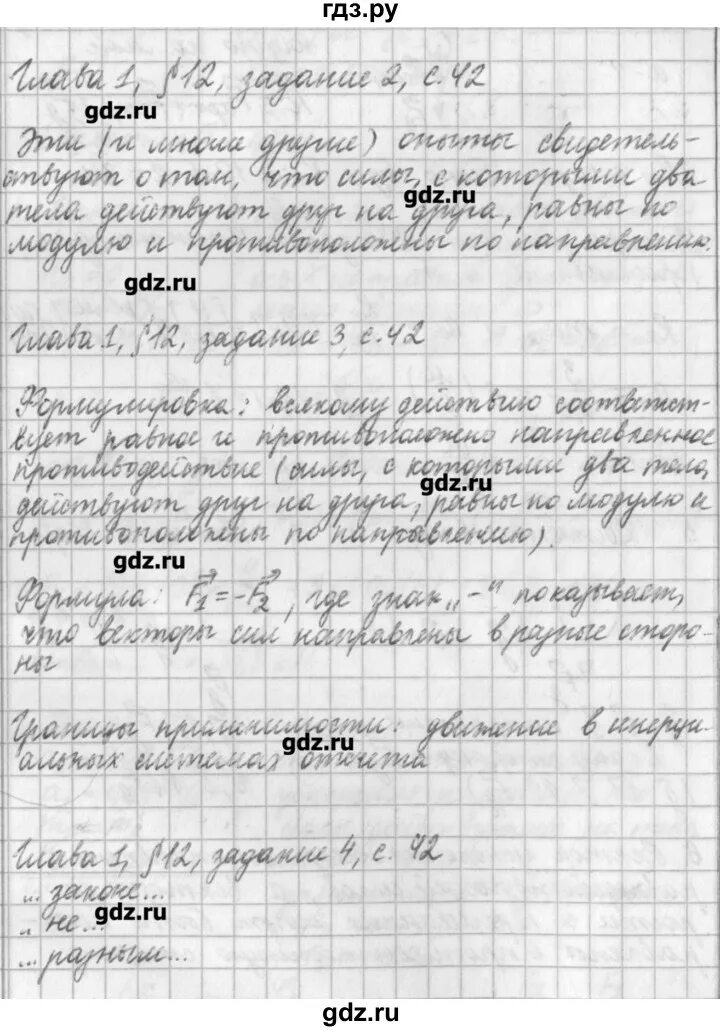 гдз.ру
Глава 1, §12, задание 2, с.42
gdz.ru
Эти (и многие другие) опыты свидетель-
ствуют о том, что силы, с которыми два
gdz.ru
тела действуют друг на друга, равны по
модулю и противоположены по направлению.
gdz.ru
Глава 1, §12, задание 3, с.42
Формулировка: всякому действию соответст-
вует равное и противоположено направленное
противодействие (силы, с которыми два тела
gdz.ru
действуют друг на друга, равны по модулю и
противоположены по направлению).
gdz.ru
Формула: F₁ = -F₂, где знак „-" показывает,
что векторы сил направлены в разные сторо-
ны
Границы применимости: движение в инерци-
gdz.ru
альных системах отсчета
Глава 1, §12, задание 4, с. 42
... законе...
gdz.ru
.. не...
... разным...
gdz.ru
gdz.ru